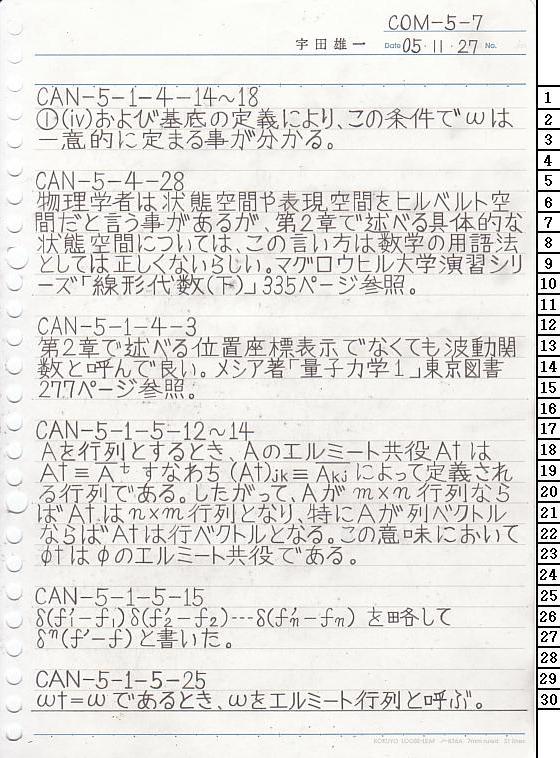 COM-5-7
宇田雄一 Date 05・11・27 No.
CAN-5-1-4-14～18
①(iv)および基底の定義により、この条件でωは
一意的に定まる事が分かる。
CAN-5-4-28
物理学者は状態空間や表現空間をヒルベルト空
間だと言う事があるが、第2章で述べる具体的な
状態空間については、この言い方は数学の用語法
としては正しくないらしい。マグロウヒル大学演習シリ
ーズ「線形代数(下)」335ページ参照。
CAN-5-1-4-3
第2章で述べる位置座標表示でなくても波動関
数と呼んで良い。メシア著「量子力学1」東京図書
277ページ参照。
CAN-5-1-5-12～14
Aを行列とするとき、Aのエルミート共役A†は
A†≡A̅ᵗ すなわち (A†)jk≡A̅kj によって定義され
る行列である。したがって、Aが m×n 行列なら
ばA†はn×m行列となり、特にAが列ベクトル
ならばA†は行ベクトルとなる。この意味において
φ†はφのエルミート共役である。
CAN-5-1-5-15
δ(f₁′-f₁)δ(f₂′-f₂)---δ(fₙ′-fₙ) を略して
δⁿ(f′-f)と書いた。
CAN-5-1-5-25
ω†=ωであるとき、ωをエルミート行列と呼ぶ。
KOKUYO LOOSE-LEAF ノ-836A 7mm ruled 31 lines
1
2
3
4
5
6
7
8
9
10
11
12
13
14
15
16
17
18
19
20
21
22
23
24
25
26
27
28
29
30